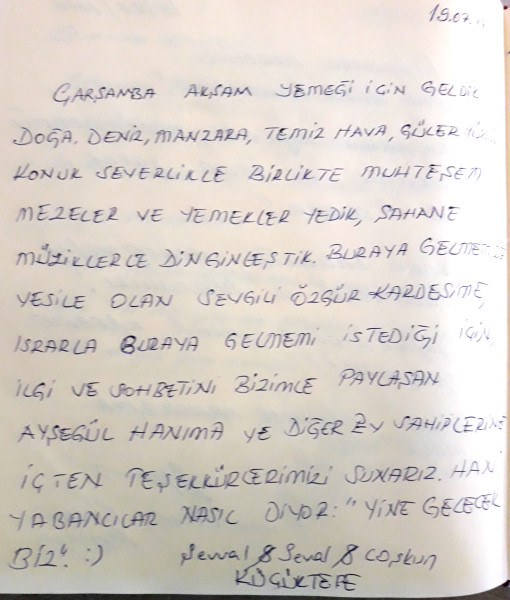 19.07.
ÇARŞAMBA AKŞAM YEMEĞİ İÇİN GELDİK
DOĞA, DENİZ, MANZARA, TEMİZ HAVA, GÜLER
KONUK SEVERLİKLE BİRLİKTE MUHTEŞEM
MEZELER VE YEMEKLER YEDİK, ŞAHANE
MÜZİKLERLE DİNGİNLEŞTİK. BURAYA
VESİLE OLAN SEVGİLİ ÖZGÜR KARDEŞİME,
ISRARLA BURAYA GELMEMİ İSTEDİĞİ İÇİN,
İLGİ VE SOHBETİNİ BİZİMLE PAYLAŞAN
AYŞEGÜL HANIMA VE DİĞER EV SAHİPLERİNE
İÇTEN TEŞEKKÜRLERİMİZİ SUNARIZ. HANİ
YABANCILAR NASIL DİYOR: "YİNE GELECEK
BİZ". :) Şevval & Seval & Coşkun
KÜÇÜKTEPE